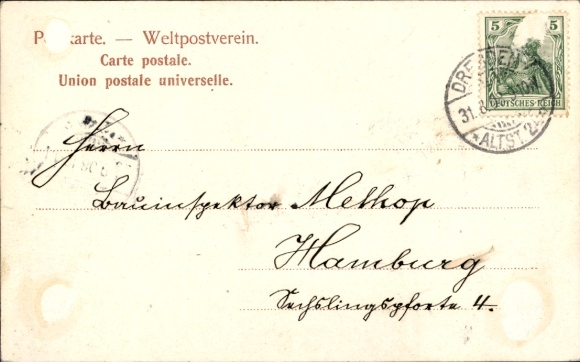 Postkarte. — Weltpostverein.
Carte postale.
Union postale universelle.
5 5
DEUTSCHES REICH
DRESDEN
31.8
*ALTST. 24
Herrn
Bauinspektor Methop
Hamburg
Sechslingspforte 4.